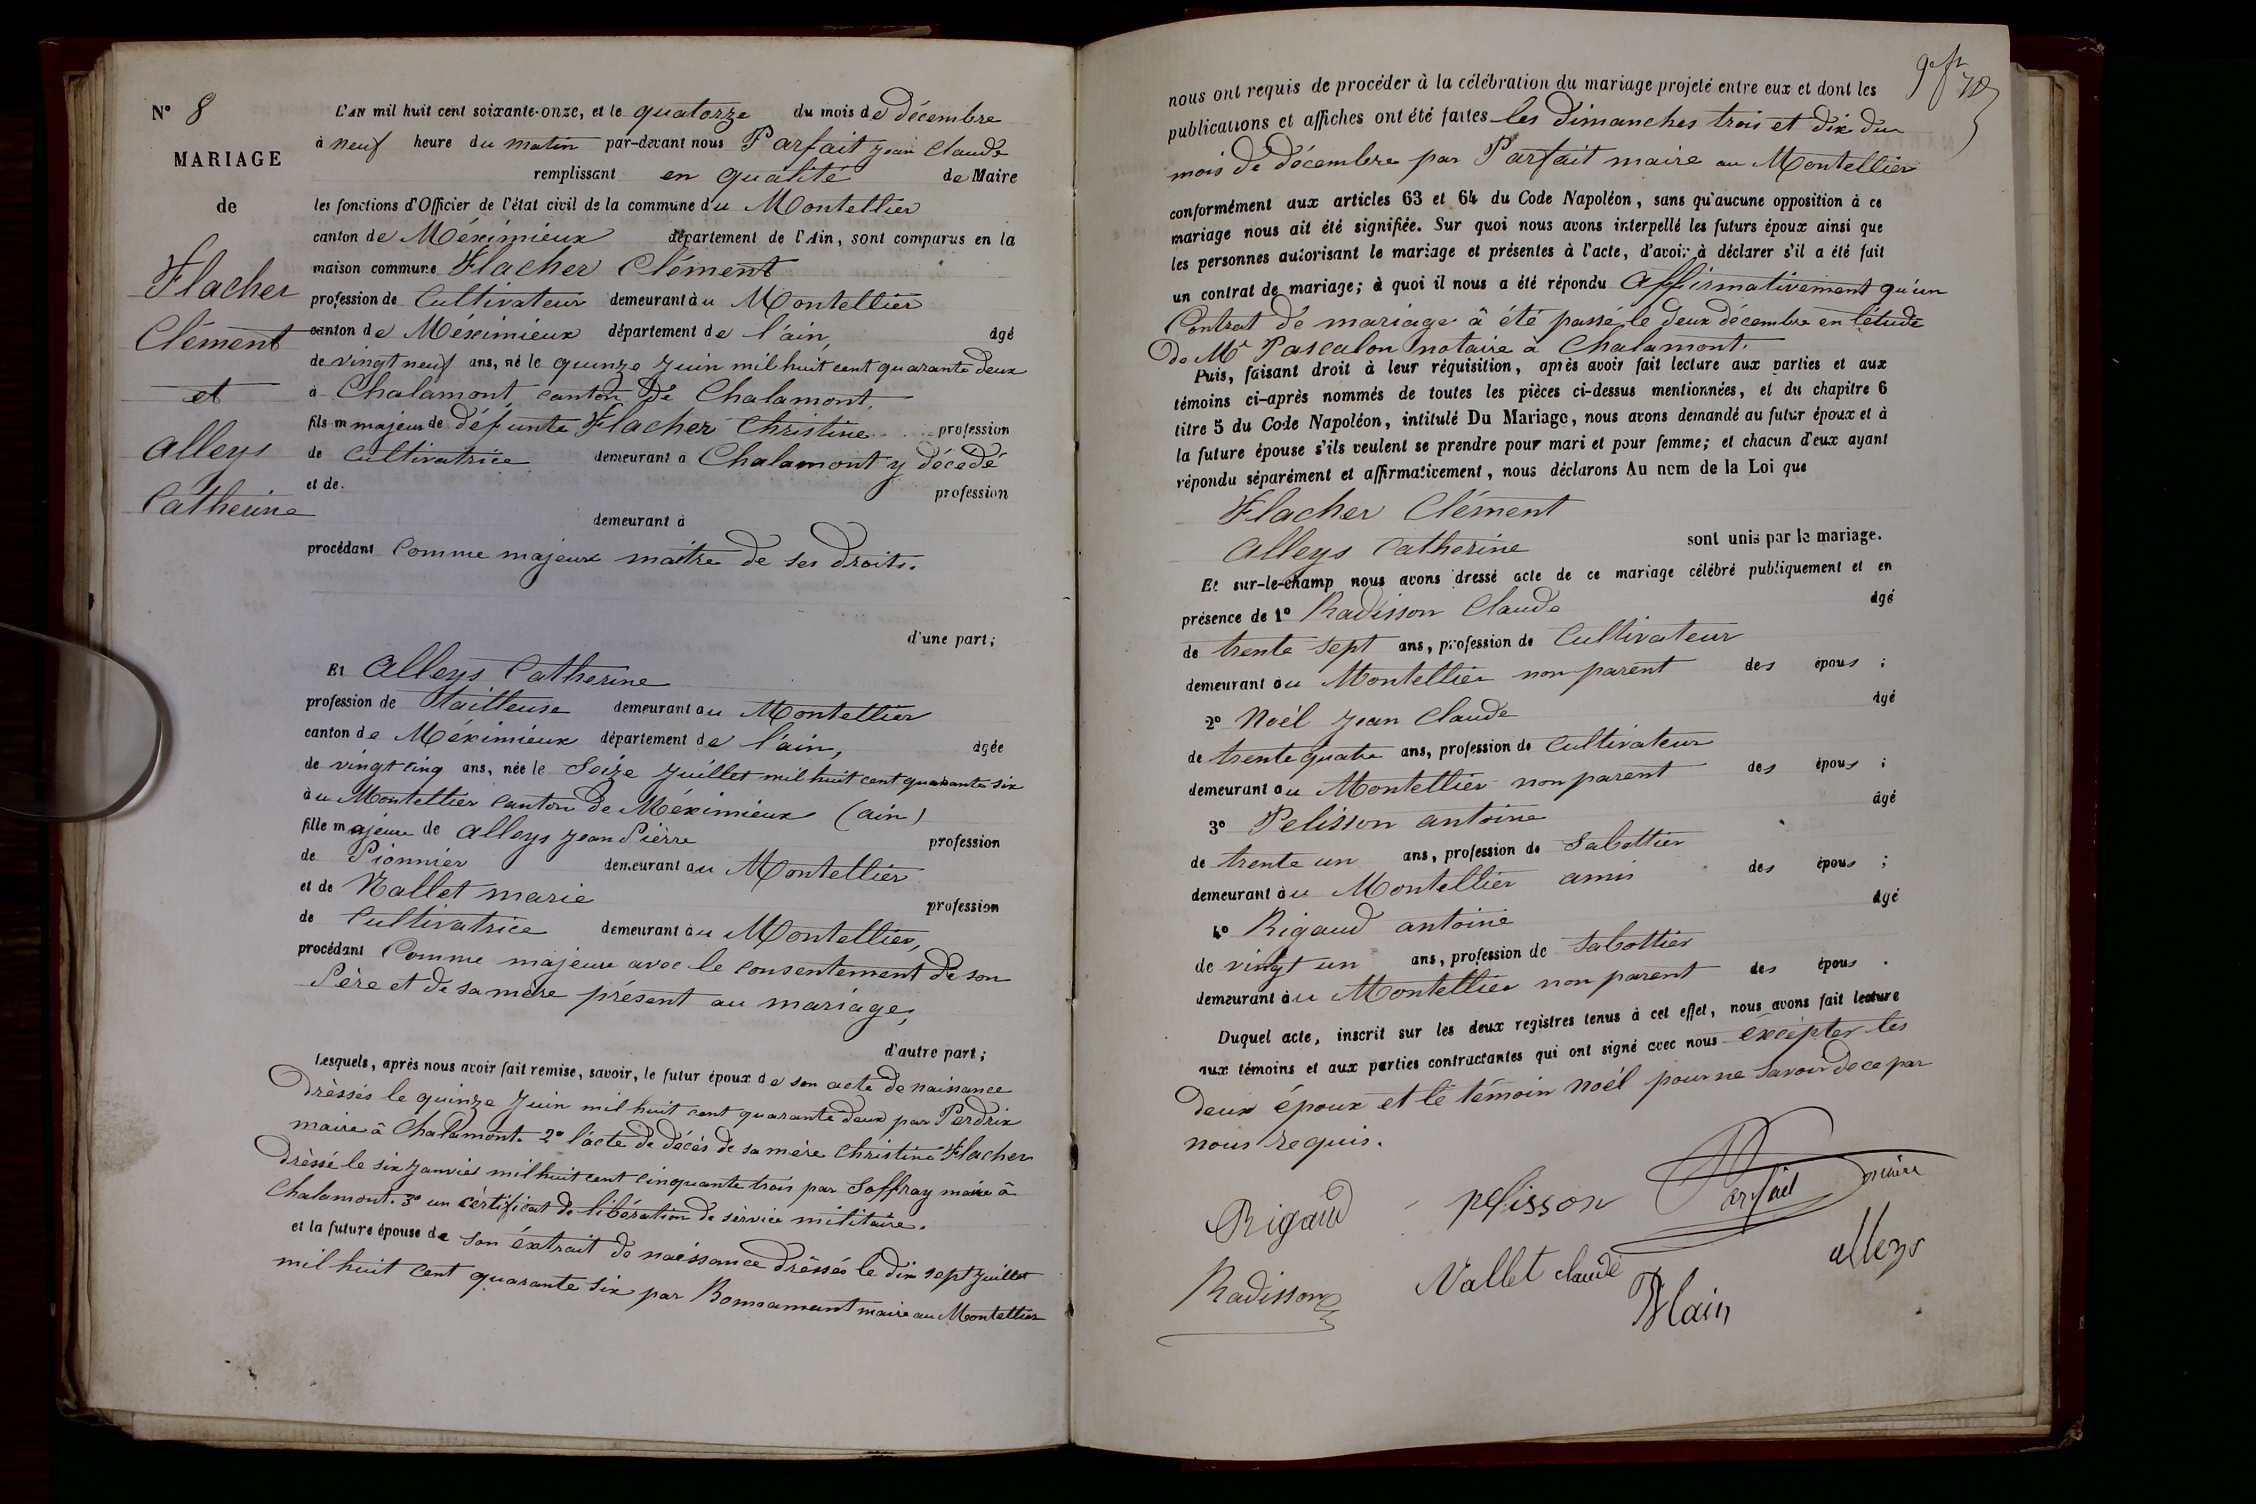 N° 8
MARIAGE
de
Flacher
Clément
et
alleys
Catherine
L'AN mil huit cent soixante-onze, et le quatorze du mois de décembre
à neuf heure du matin par-devant nous Parfait jean Claude
remplissant en qualité de Maire
les fonctions d'Officier de l'état civil de la commune du Montellier
canton de Méximieux département de l'Ain, sont comparus en la
maison commune Flacher Clément
profession de Cultivateur demeurant au Montellier
canton de Méximieux département de l'ain, âgé
de vingt neuf ans, né le quinze juin mil huit cent quarante deux
à Chalamont canton de Chalamont,
fils m majeur de défunte Flacher Christine profession
de cultivatrice demeurant à Chalamont y décedé
et de profession
demeurant à
procédant Comme majeux maître de ses droits.
d'une part;
Et alleys Catherine
profession de tailleuse demeurant au Montellier
canton de Méximieux département de l'ain, âgée
de vingt cinq ans, née le Seize juillet mil huit cent quarante six
au Montellier canton de Méximieux (ain)
fille majeure de alleys jean Pièrre profession
de Pionnier demeurant au Montellier
et de Vallet marie profession
de Cultivatrice demeurant au Montellier,
procédant Comme majeure avec le consentement de son
Père et de sa mère présent au mariage,
d'autre part;
Lesquels, après nous avoir fait remise, savoir, le futur époux de son acte de naissance
drèssés le quinze juin mil huit cent quarante deux par Perdrix
maire â Chalamont. 2° l'acte de décès de sa mère Christine Flacher
drèssé le six janvier mil huit cent cinquante trois par Soffray maire â
Chalamont. 3° un cèrtificat de libération de sèrvice militaire.
et la future épouse de son éxtrait de naissance drèssés le dix sept juillet
mil huit cent quarante six par maire au Montellier
nous ont requis de procéder à la célébration du mariage projeté entre eux et dont les
publications et affiches ont été faites les dimanches trois et dix du
mois de décembre par Parfait maire au Montellier
conformément aux articles 63 et 64 du Code Napoléon, sans qu'aucune opposition à ce
mariage nous ait été signifiée. Sur quoi nous avons interpellé les futurs époux ainsi que
les personnes autorisant le mariage et présentes à l'acte, d'avoir à déclarer s'il a été fait
un contrat de mariage; à quoi il nous a été répondu affirmativement qu'un
Contrat de mariage â été passé le deux décembre en l'étude
de Me Pascalon notaire à Chalamont.
Puis, faisant droit à leur réquisition, après avoir fait lecture aux parties et aux
témoins ci-après nommés de toutes les pièces ci-dessus mentionnées, et du chapitre 6
titre 5 du Code Napoléon, intitulé Du Mariage, nous avons demandé au futur époux et à
la future épouse s'ils veulent se prendre pour mari et pour femme; et chacun d'eux ayant
répondu séparément et affirmativement, nous déclarons Au nom de la Loi que
Flacher Clément
alleys Catherine sont unis par le mariage.
Et sur-le-champ nous avons dressé acte de ce mariage célébré publiquement et en
présence de 1° Radisson Claude âgé
de trente sept ans, profession de Cultivateur
demeurant au Montellier non parent des épous ;
2° Noél jean Claude âgé
de trente quatre ans, profession de Cultivateur
demeurant au Montellier non parent des épous ;
3° Pelisson antoine âgé
de trente un ans, profession de Sabottier
demeurant au Montellier amis des épous ;
4° Rigaud antoine âgé
de vingt un ans, profession de Sabottier
demeurant au Montellier non parent des épous .
Duquel acte, inscrit sur les deux registres tenus à cet effet, nous avons fait lecture
aux témoins et aux parties contractantes qui ont signé avec nous éxcèpter les
deux époux et le témoin Noél pour ne savoir de ce par
nous requis.
Rigaud pelisson Parfait maire
Radisson Vallet claude alleys
Blain